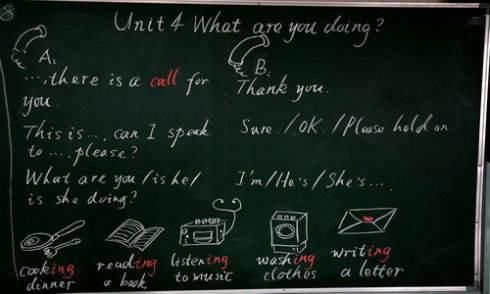 Unit 4 What are you doing?
A:
...., there is a call for
you.
This is ...., can I speak
to ...., please?
What are you / is he /
is she doing?
B:
Thank you.
Sure. / OK. / Please hold on.
I'm / He's / She's ....
cooking
dinner
reading
a book
listening
to music
washing
clothes
writing
a letter